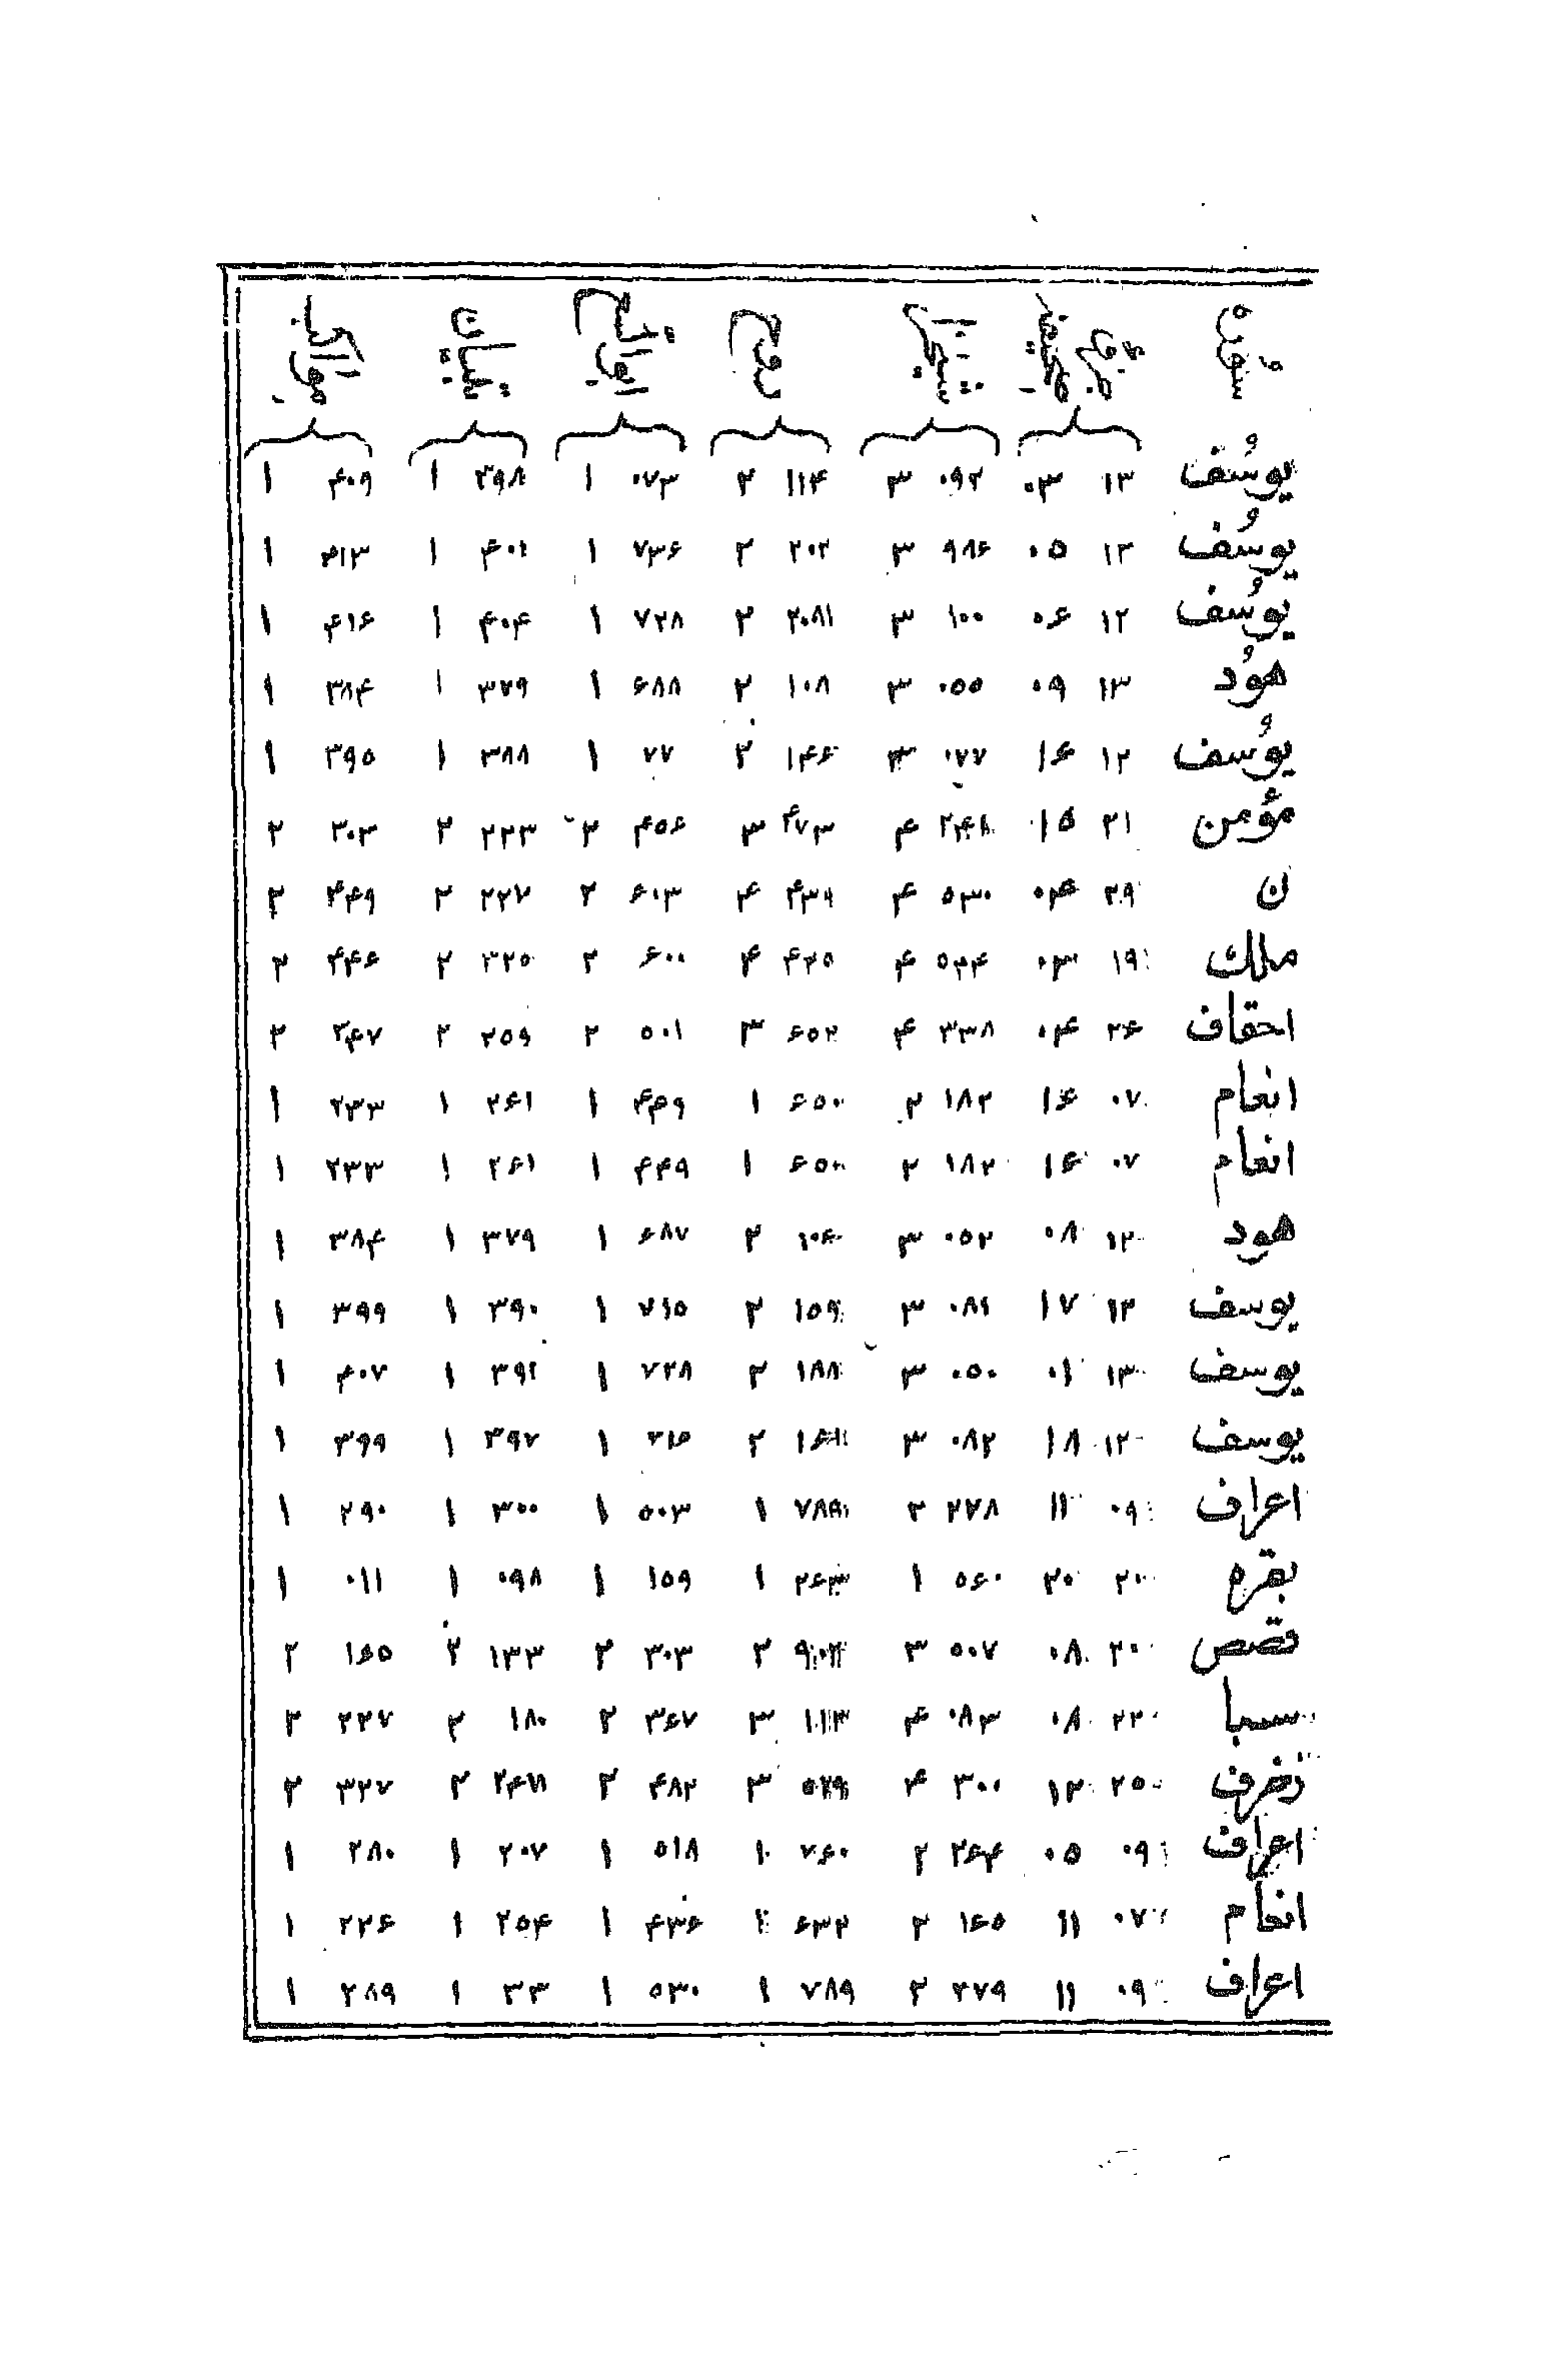 یوسُف ۱۳ ۰۳ ۰۹۲ ۳ ۱۱۴ ۲ ۰۷۳ ۱ ۳۹۸ ۱ ۴۰۹ ۱
یوسُف ۱۳ ۰۵ ۹۸۶ ۳ ۲۰۲ ۲ ۷۳۶ ۱ ۴۰۱ ۱ ۴۱۳ ۱
یوسُف ۱۲ ۰۶ ۱۰۰ ۳ ۲۰۸۱ ۲ ۷۲۸ ۱ ۴۰۴ ۱ ۴۱۶ ۱
هوُد ۱۳ ۰۹ ۰۵۵ ۳ ۱۰۸ ۲ ۶۸۸ ۱ ۳۷۹ ۱ ۳۸۴ ۱
یوسُف ۱۲ ۱۶ ۰۷۷ ۳ ۱۴۶ ۲ ۷۷ ۱ ۳۸۸ ۱ ۳۹۵ ۱
مؤمن ۲۱ ۱۵ ۲۴۱ ۴ ۴۷۳ ۳ ۴۵۶ ۲ ۲۳۳ ۲ ۳۰۳ ۲
ن ۲۹ ۰۴ ۵۳۰ ۴ ۴۳۹ ۴ ۶۰۳ ۲ ۲۲۷ ۲ ۴۴۹ ۲
ملك ۱۹ ۰۳ ۵۲۴ ۴ ۴۲۵ ۴ ۶۰۰ ۲ ۳۲۵ ۲ ۴۴۶ ۲
احقاف ۲۶ ۰۴ ۳۳۸ ۴ ۶۵۲ ۳ ۵۰۱ ۲ ۲۵۹ ۲ ۳۴۷ ۲
انعام ۰۷ ۱۶ ۱۸۲ ۲ ۶۵۰ ۱ ۴۴۹ ۱ ۲۶۱ ۱ ۲۳۳ ۱
انعام ۰۷ ۱۶ ۱۸۲ ۲ ۶۵۰ ۱ ۴۴۹ ۱ ۲۶۱ ۱ ۲۳۳ ۱
هود ۱۲ ۰۸ ۰۵۲ ۳ ۱۰۶ ۲ ۶۸۷ ۱ ۳۷۹ ۱ ۳۸۴ ۱
یوسف ۱۳ ۱۷ ۰۸۱ ۳ ۱۵۹ ۲ ۷۱۵ ۱ ۳۹۰ ۱ ۳۹۹ ۱
یوسف ۱۳ ۰۱ ۰۵۰ ۳ ۱۸۸ ۲ ۷۲۸ ۱ ۳۹۲ ۱ ۴۰۷ ۱
یوسف ۱۲ ۱۸ ۰۸۲ ۳ ۱۶۱ ۲ ۷۱۵ ۱ ۳۹۷ ۱ ۳۹۹ ۱
اعراف ۰۹ ۱۱ ۲۷۸ ۲ ۷۸۹ ۱ ۵۰۳ ۱ ۳۰۰ ۱ ۲۹۰ ۱
بقره ۲۰ ۲۰ ۵۶۰ ۱ ۲۶۳ ۱ ۱۵۹ ۱ ۰۹۸ ۱ ۰۱۱ ۱
قصص ۲۰ ۰۸ ۵۰۷ ۳ ۹۰۲ ۲ ۳۰۳ ۲ ۱۳۳ ۲ ۱۶۵ ۲
سبا ۲۲ ۰۸ ۰۸۳ ۴ ۱۱۳ ۳ ۳۶۷ ۲ ۱۸۰ ۲ ۲۲۷ ۲
زخرف ۲۵ ۱۲ ۳۰۰ ۴ ۵۲۹ ۳ ۴۸۲ ۲ ۲۴۷ ۲ ۳۲۷ ۲
اعراف ۰۹ ۰۵ ۲۶۴ ۲ ۷۶۰ ۱ ۵۱۸ ۱ ۲۰۷ ۱ ۲۸۰ ۱
انعام ۰۷ ۱۱ ۱۶۵ ۲ ۶۳۲ ۱ ۴۳۶ ۱ ۲۵۴ ۱ ۲۲۶ ۱
اعراف ۰۹ ۱۱ ۲۷۹ ۲ ۷۸۹ ۱ ۵۳۰ ۱ ۳۳ ۱ ۲۸۹ ۱